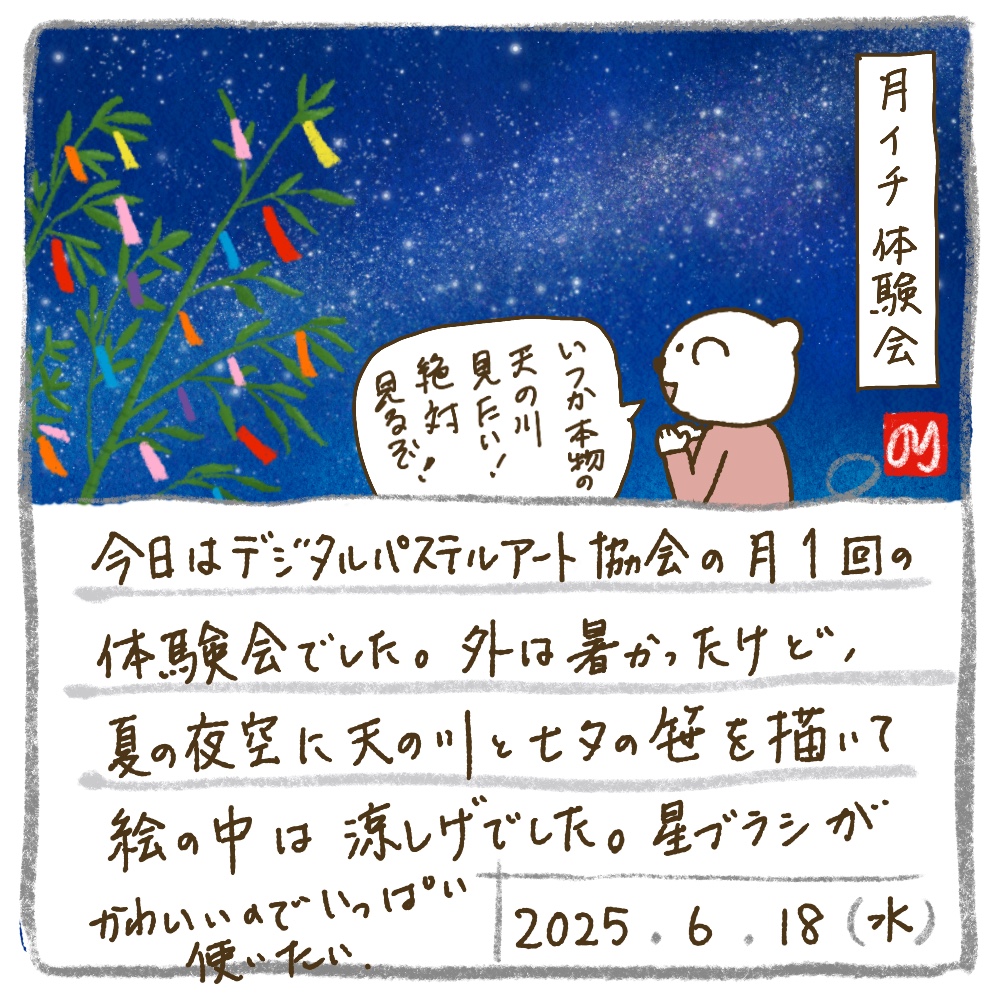 月イチ体験会
いつか本物の
天の川
見たい!
絶対
見るぞ!
今日はデジタルパステルアート協会の月1回の
体験会でした。外は暑かったけど、
夏の夜空に天の川と七夕の笹を描いて
絵の中は涼しげでした。星ブラシが
かわいいのでいっぱい
使いたい.
2025.6.18(水)